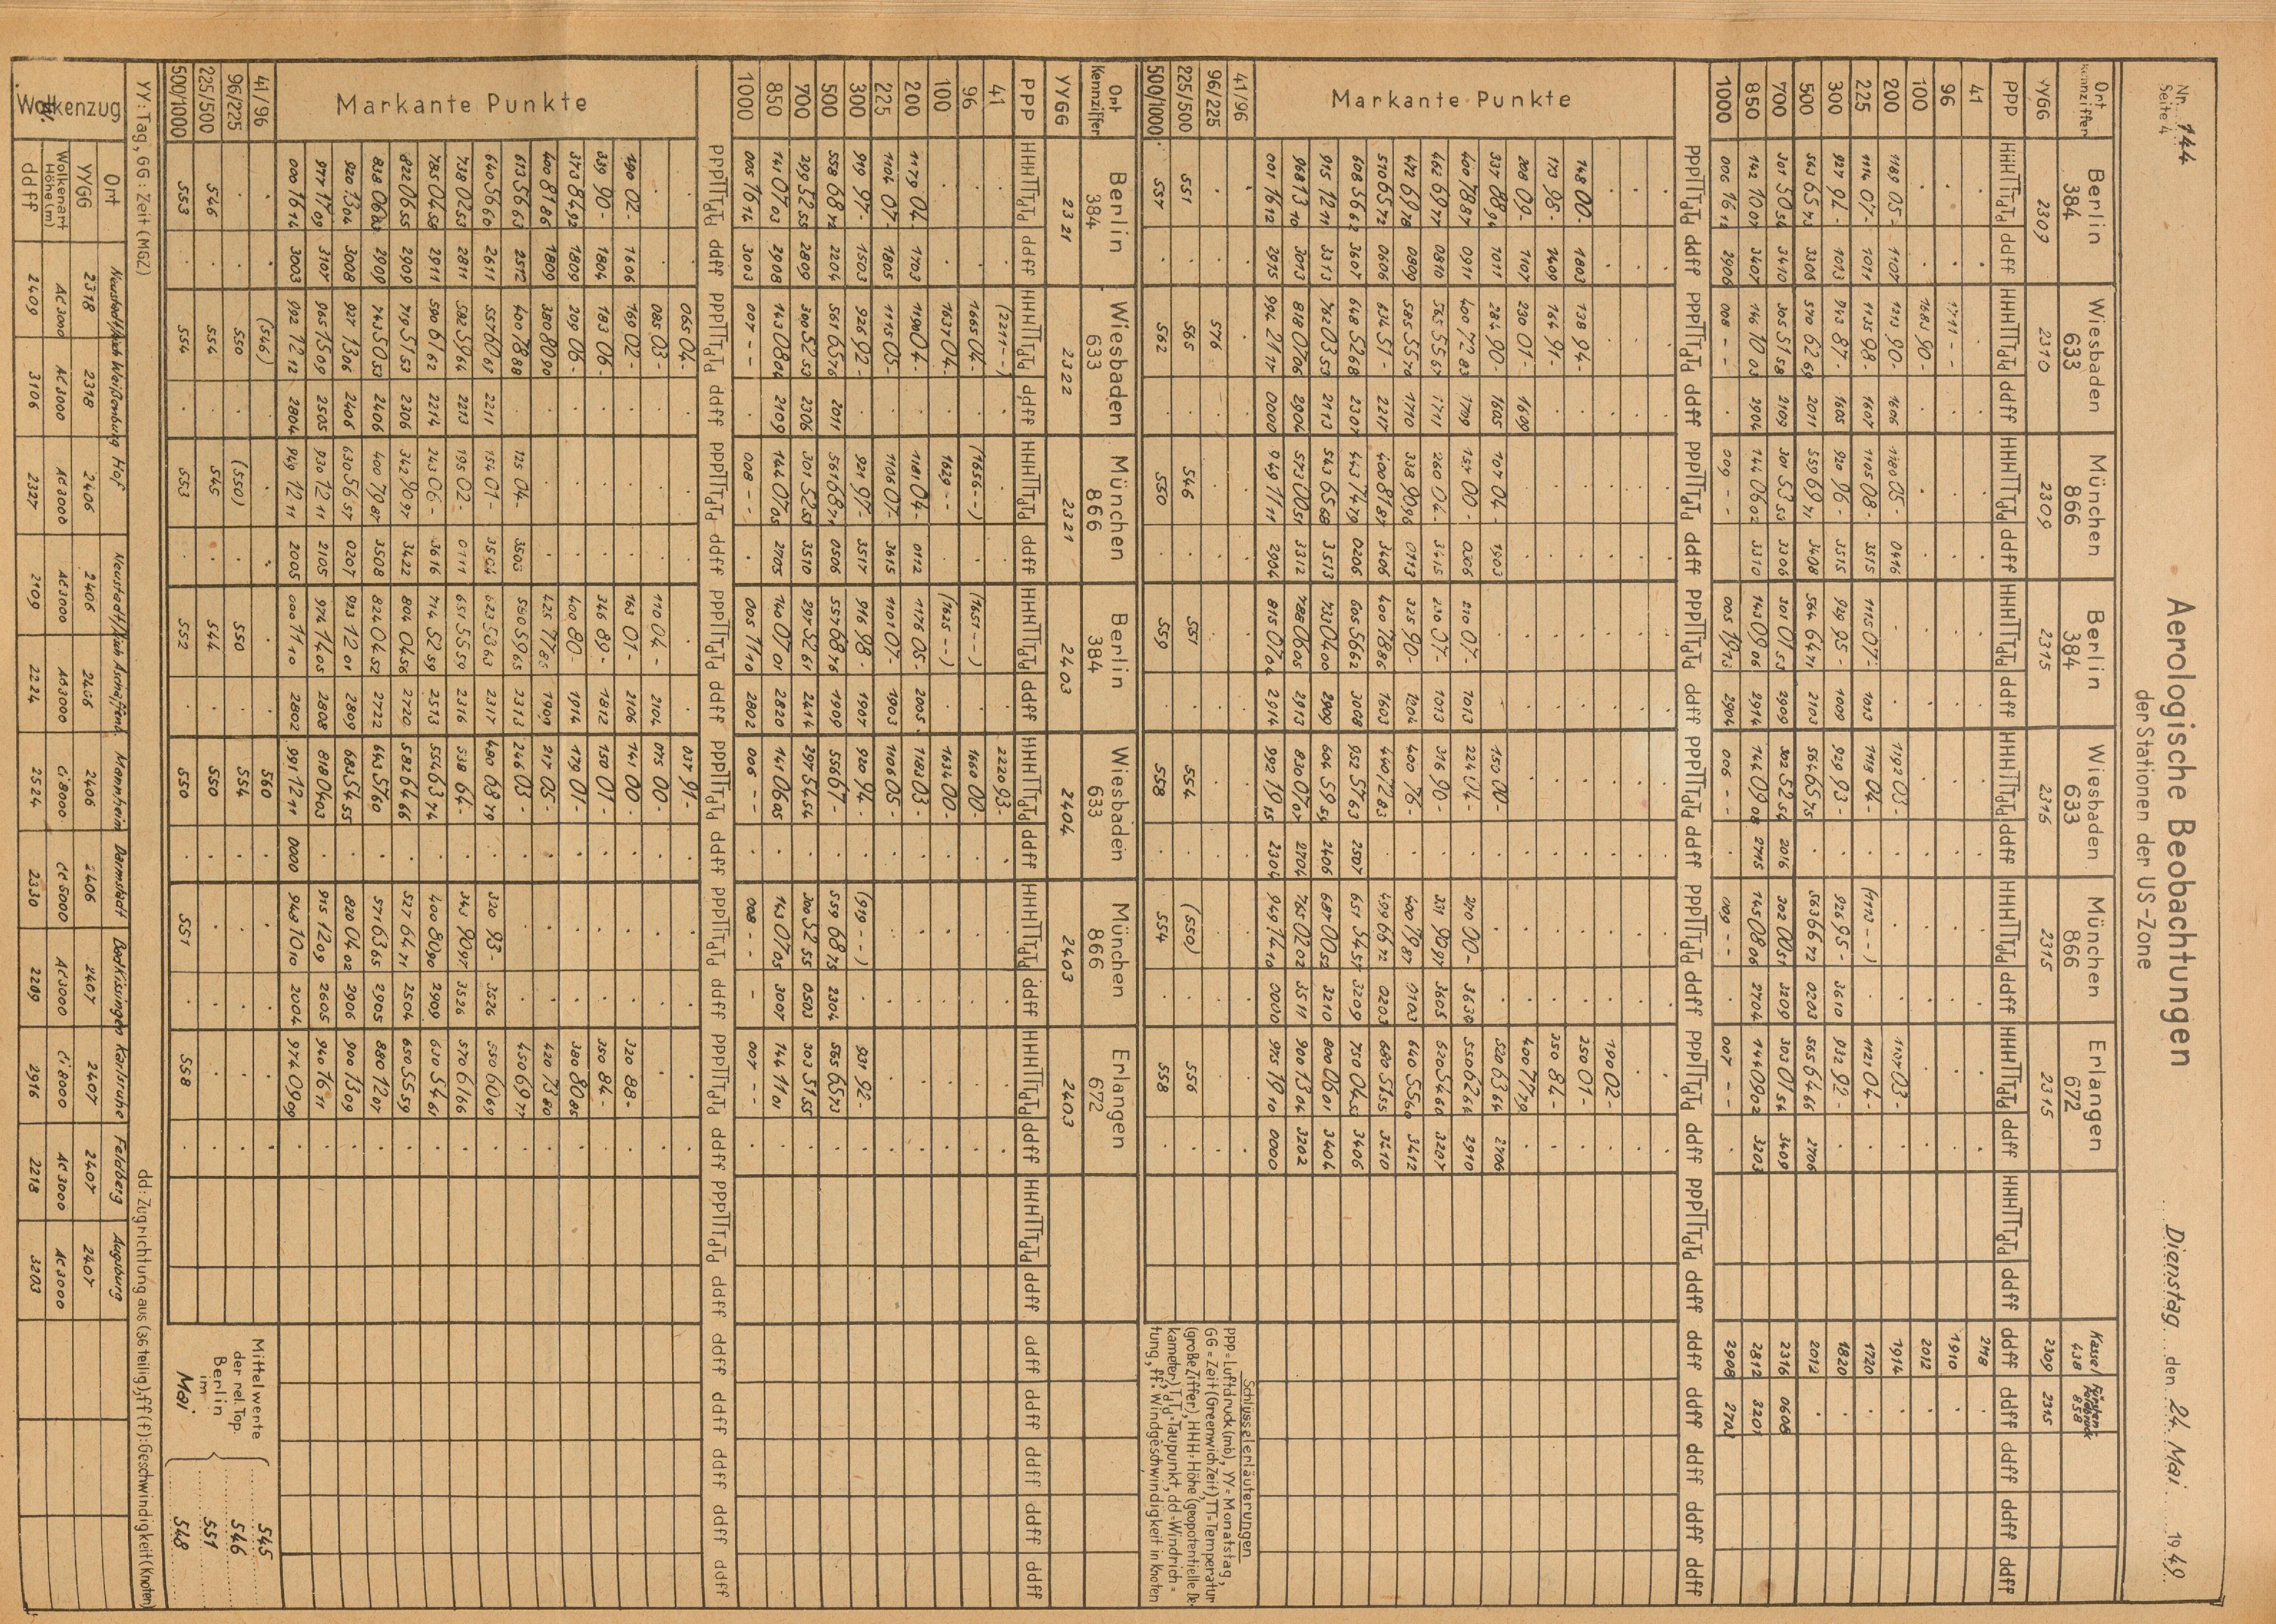 Nr. 144
Seite 4
Aerologische Beobachtungen
der Stationen der US-Zone
Dienstag den 24. Mai 1949
Ort Kennziffer Berlin 384 Wiesbaden 633 München 866 Berlin 384 Wiesbaden 633 München 866 Erlangen 672 Kassel 438 858
YYGG 2309 2310 2309 2315 2316 2315 2315 2309 2315
PPP HHHTTTdTd ddff HHHTTTdTd ddff HHHTTTdTd ddff HHHTTTdTd ddff HHHTTTdTd ddff HHHTTTdTd ddff HHHTTTdTd ddff HHHTTTdTd ddff ddff ddff ddff ddff ddff
41 2118
96 1711 - - 1910
100 1683 90- 2012
200 1189 05- 1107 1213 90- 1606 1180 05- 0416 1192 03- 1197 03- 1914
225 1114 07- 1011 1135 98- 1607 1105 08- 3515 1115 07- 1013 1119 04- (1113 - -) 1121 04- 1720
300 927 94- 1013 943 87- 1605 920 96- 3515 929 95- 1009 929 93- 926 95- 3610 932 92- 1820
500 563 65 73 3306 570 62 69 2011 559 69 71 3408 564 64 71 2103 564 65 75 563 66 72 0203 565 64 66 2706 2012
700 301 50 54 3410 305 51 58 2109 301 53 53 3306 301 01 53 2909 302 52 54 2016 302 00 51 3209 303 01 54 3409 2316 0606
850 142 10 07 3407 146 10 03 2904 144 06 02 3310 143 09 06 2914 144 09 08 2715 145 08 06 2704 144 09 02 3203 2812 3201
1000 006 16 12 2906 008 - - 009 - - 005 19 13 2904 006 - - 009 - - 007 - - 2908 2702
PPPTTTdTd ddff PPPTTTdTd ddff PPPTTTdTd ddff PPPTTTdTd ddff PPPTTTdTd ddff PPPTTTdTd ddff PPPTTTdTd ddff PPPTTTdTd ddff ddff ddff ddff ddff ddff
Markante Punkte
190 02-
250 01-
148 00- 1803 138 94- 350 84-
173 98- 1409 164 91- 400 77 79
208 09- 1107 230 01- 1609 520 63 64 2706
337 88 94 1011 284 90- 1605 107 04- 1903 150 00- 550 62 64 2910
400 78 87 0911 400 72 83 1709 157 00- 0306 210 07- 1013 224 04- 270 00- 3630 620 54 60 3207
462 69 77 0810 565 55 67 1711 260 04- 3415 230 07- 1013 316 90- 331 90 97 3605 640 55 60 3412
472 69 78 0809 585 55 70 1710 338 90 96 0113 325 90- 1204 400 76- 400 79 87 0103 680 51 55 3410
570 65 72 0606 634 51- 2217 400 81 87 3406 400 78 86 1603 440 72 83 499 66 72 0203 750 04 53 3406
608 56 62 3607 648 52 68 2307 443 74 79 0206 605 56 62 3008 552 57 63 2507 651 54 57 3209 800 06 01 3404
915 12 11 3313 762 03 53 2113 543 65 68 3513 730 04 00 2909 604 59 54 2406 687 00 52 3210 900 13 04 3202
968 13 10 3013 818 07 06 2904 573 00 51 3312 788 06 05 2913 830 07 07 2704 765 02 02 3511 975 19 10 0000
001 16 12 2915 994 21 17 0000 949 11 11 2904 815 07 04 2914 992 19 15 2304 949 14 10 0000
41/96
96/225 576
225/500 551 565 546 551 554 (550) 556
500/1000 557 562 550 559 558 554 558
Schlüsselerläuterungen
PPP = Luftdruck (mb), YY = Monatstag,
GG = Zeit (Greenwich Zeit), TT = Temperatur
(große Ziffer), HHH = Höhe (geopotentielle De-
kameter), TdTd = Taupunkt, dd = Windrich-
tung, ff = Windgeschwindigkeit in Knoten
Ort Kennziffer Berlin 384 Wiesbaden 633 München 866 Berlin 384 Wiesbaden 633 München 866 Erlangen 672
YYGG 2321 2322 2321 2403 2404 2403 2403
PPP HHHTTTdTd ddff HHHTTTdTd ddff HHHTTTdTd ddff HHHTTTdTd ddff HHHTTTdTd ddff HHHTTTdTd ddff HHHTTTdTd ddff HHHTTTdTd ddff ddff ddff ddff ddff ddff
41 (2211 - -) 2220 93-
96 1665 04- (1656 - -) (1651 - -) 1660 00-
100 1637 04- 1629 - - (1625 - -) 1634 00-
200 1179 04- 1703 1190 04- 1181 04- 0112 1176 05- 2005 1183 03-
225 1104 07- 1805 1115 05- 1106 07- 3615 1101 07- 1903 1106 05-
300 919 97- 1503 926 92- 921 97- 3517 916 98- 1907 920 94- (919 - -) 931 92-
500 558 68 72 2204 561 65 76 2011 561 68 71 0506 557 68 76 1909 556 67- 559 68 75 2304 565 65 73
700 299 52 55 2809 300 52 53 2306 301 52 53 3510 297 52 61 2414 297 54 54 300 52 55 0503 303 51 55
850 141 07 03 2908 143 08 04 2109 144 07 05 2705 140 07 01 2820 141 06 05 143 07 05 3007 144 11 01
1000 005 16 14 3003 007 - - 008 - - 005 11 10 2802 006 - - 008 - - - 007 - -
PPPTTTdTd ddff PPPTTTdTd ddff PPPTTTdTd ddff PPPTTTdTd ddff PPPTTTdTd ddff PPPTTTdTd ddff PPPTTTdTd ddff PPPTTTdTd ddff ddff ddff ddff ddff ddff
Markante Punkte
065 04- 037 91-
085 03- 110 04- 2104 075 00-
190 02- 1606 169 02- 163 01- 2106 141 00- 320 88-
339 90- 1804 183 06- 346 89- 1812 150 01- 350 84-
373 84 92 1809 209 06- 400 80- 1914 179 01- 380 80 86
400 81 86 1809 380 80 90 425 77 85 1909 217 05- 420 73 80
613 56 63 2512 400 78 88 125 04- 3503 580 59 65 2313 246 03- 450 69 77
640 56 60 2611 557 60 67 2211 154 01- 3504 623 58 63 2317 490 68 79 320 93- 3526 550 60 69
738 02 53 2811 582 59 64 2213 195 02- 0111 651 55 59 2316 538 64- 343 90 97 3526 570 61 66
785 04 58 2911 590 61 62 2214 243 06- 3616 714 52 59 2513 554 63 74 400 80 90 2909 630 54 61
822 06 55 2909 719 51 53 2306 342 90 97 3422 804 04 56 2720 582 64 66 527 64 71 2504 650 55 59
838 06 03 2909 743 50 53 2406 400 79 87 3508 824 04 52 2722 643 57 60 571 63 65 2905 880 12 07
920 13 04 3008 927 13 06 2406 630 56 57 0207 923 12 01 2809 683 54 55 820 04 02 2906 900 13 09
977 17 09 3107 965 15 09 2505 930 12 11 2105 974 14 05 2808 818 04 03 915 12 09 2605 940 16 11
000 16 14 3003 992 12 12 2804 949 12 11 2005 000 11 10 2802 991 12 11 0000 948 10 10 2004 974 09 09
41/96 (546) 560
96/225 550 (550) 550 554
225/500 546 554 545 544 550
500/1000 553 554 553 552 550 551 558
Mittelwerte
der rel. Top.
Berlin
im
Mai
545
546
551
548
YY: Tag, GG: Zeit (MGZ) dd: Zugrichtung aus (36 teilig), ff (f): Geschwindigkeit (Knoten)
Wolkenzug
Ort Weißenburg Hof Mannheim Darmstadt Bad Kissingen Karlsruhe Feldberg Augsburg
YYGG 2318 2318 2406 2406 2406 2406 2406 2407 2407 2407 2407
Wolkenart Höhe (m) Ac 3000 Ac 3000 Ac 3000 Ac 3000 Ac 3000 Ci 8000 Cc 5000 Ac 3000 Ci 8000 Ac 3000 Ac 3000
ddff 2409 3106 2327 2109 2224 2524 2330 2209 2916 2218 3203